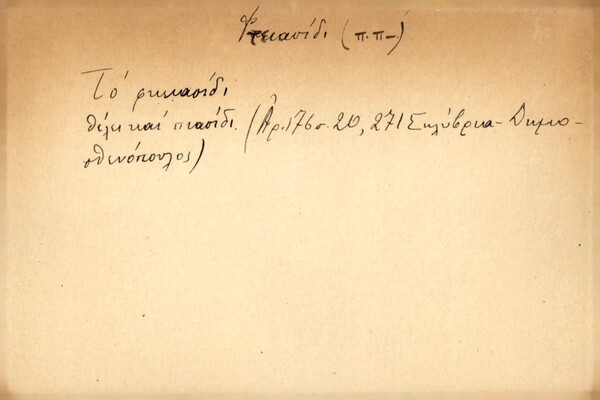 φτιασίδι (π.π-)
Τό φτιασίδι
θέλει καί πιασίδι. (Ἀρ.176 σ. 20, 271 Σηλύβρια - Δημο-
σθενόπουλος)